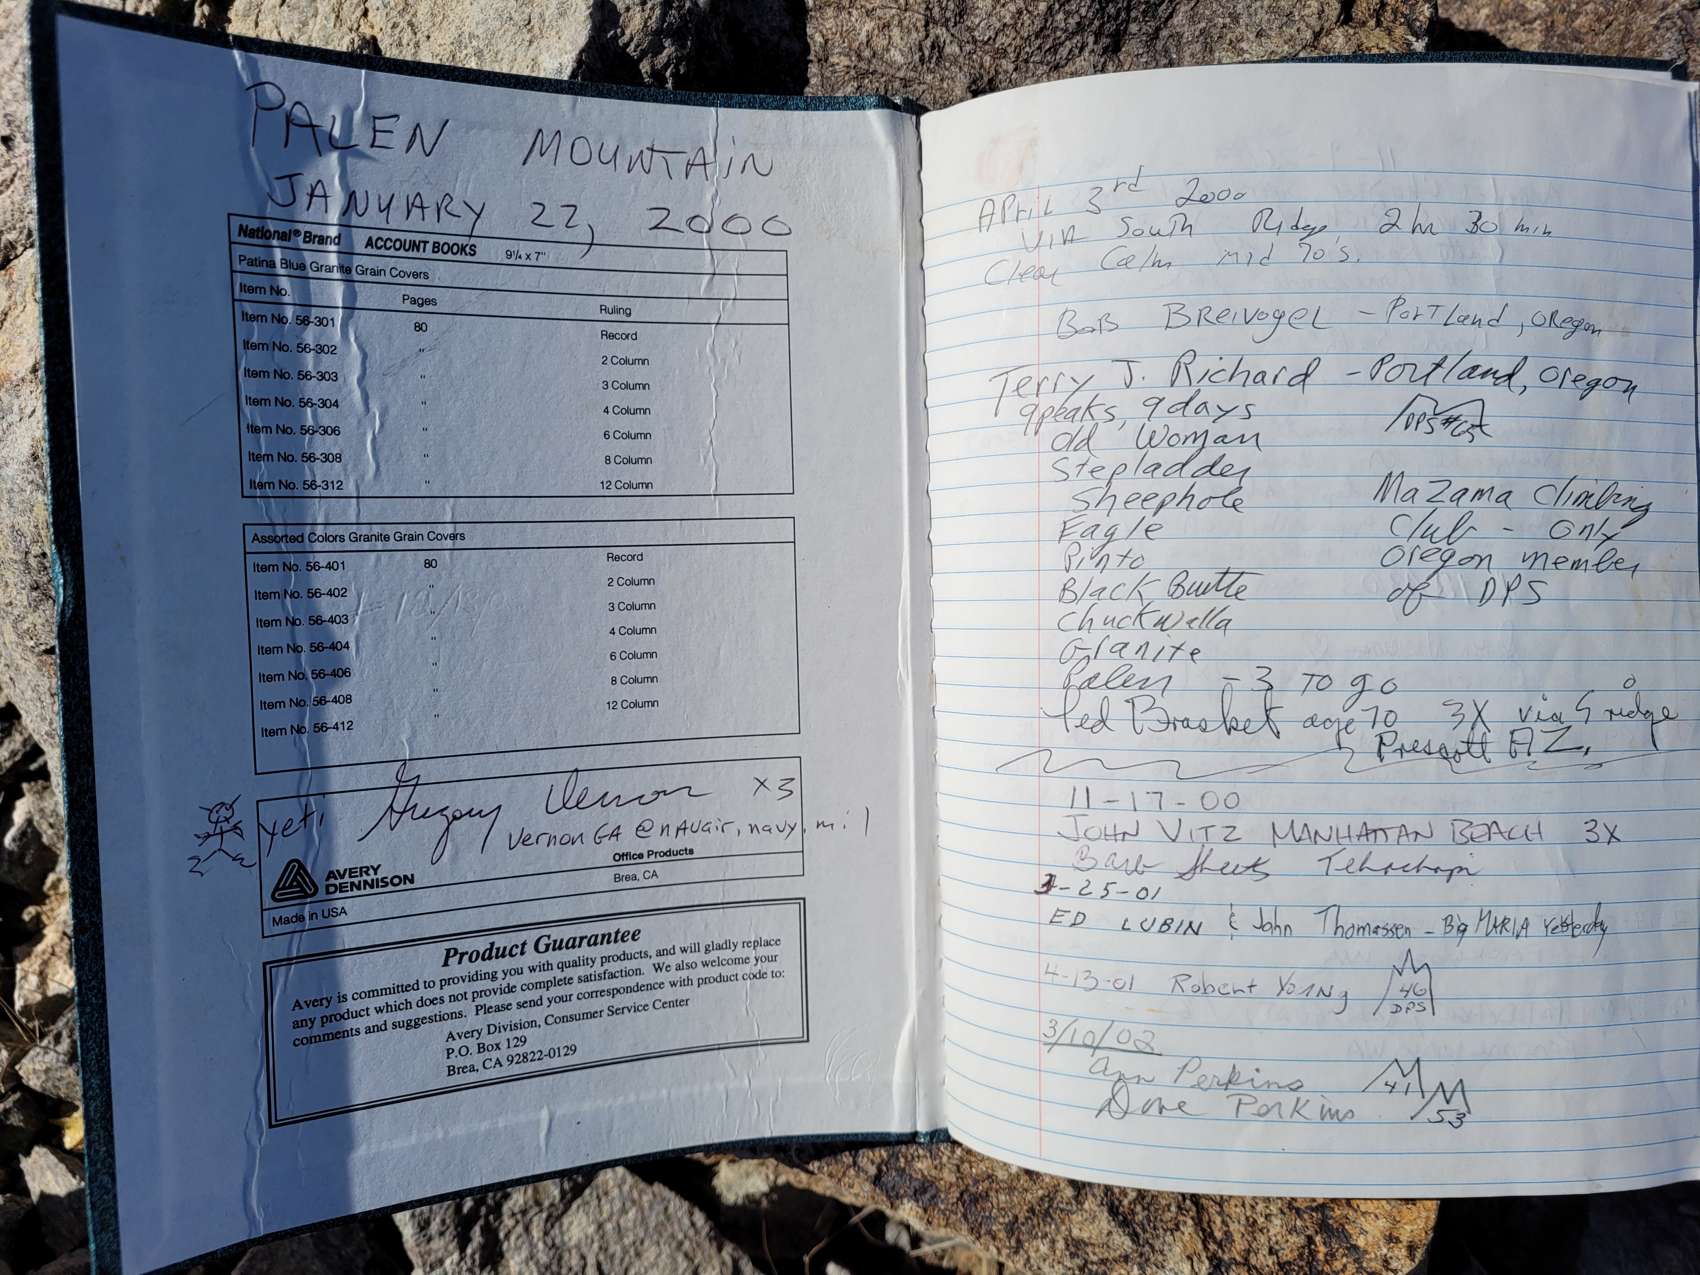 PALEN MOUNTAIN
JANUARY 22, 2000
National® Brand ACCOUNT BOOKS 9¼ x 7"
Patina Blue Granite Grain Covers
Item No. Pages Ruling
Item No. 56-301 80 Record
Item No. 56-302 " 2 Column
Item No. 56-303 " 3 Column
Item No. 56-304 " 4 Column
Item No. 56-306 " 6 Column
Item No. 56-308 " 8 Column
Item No. 56-312 " 12 Column
Assorted Colors Granite Grain Covers
Item No. 56-401 80 Record
Item No. 56-402 " 2 Column
Item No. 56-403 " 3 Column
Item No. 56-404 " 4 Column
Item No. 56-406 " 6 Column
Item No. 56-408 " 8 Column
Item No. 56-412 " 12 Column
yeti Gregory Vernon x3
VernonGA@navair.navy.mil
AVERY
DENNISON
Office Products
Brea, CA
Made in USA
Product Guarantee
Avery is committed to providing you with quality products, and will gladly replace
any product which does not provide complete satisfaction. We also welcome your
comments and suggestions. Please send your correspondence with product code to:
Avery Division, Consumer Service Center
P.O. Box 129
Brea, CA 92822-0129
April 3rd 2000
VIA South Ridge 2 hr 30 min
Clear Calm mid 70's.
BOB BREIVOGEL - Portland, Oregon
Terry J. Richard - Portland, Oregon
9peaks, 9days
DPS #65
Old Woman
Stepladder
Sheephole
Eagle
Pinto
Black Butte
Chuckwalla
Granite
Palen - 3 TO go
Mazama Climbing
Club - Only
Oregon member
of DPS
Ted Brasket age 70 3X via S ridge
Prescott AZ.
11-17-00
JOHN VITZ MANHATTAN BEACH 3X
Barb Sheets Tehachapi
-25-01
ED LUBIN & John Thomassen - Big MARIA Yesterday
4-13-01 Robert Young 46 DPS
3/10/02
Ann Perkins 41
Dave Perkins 53